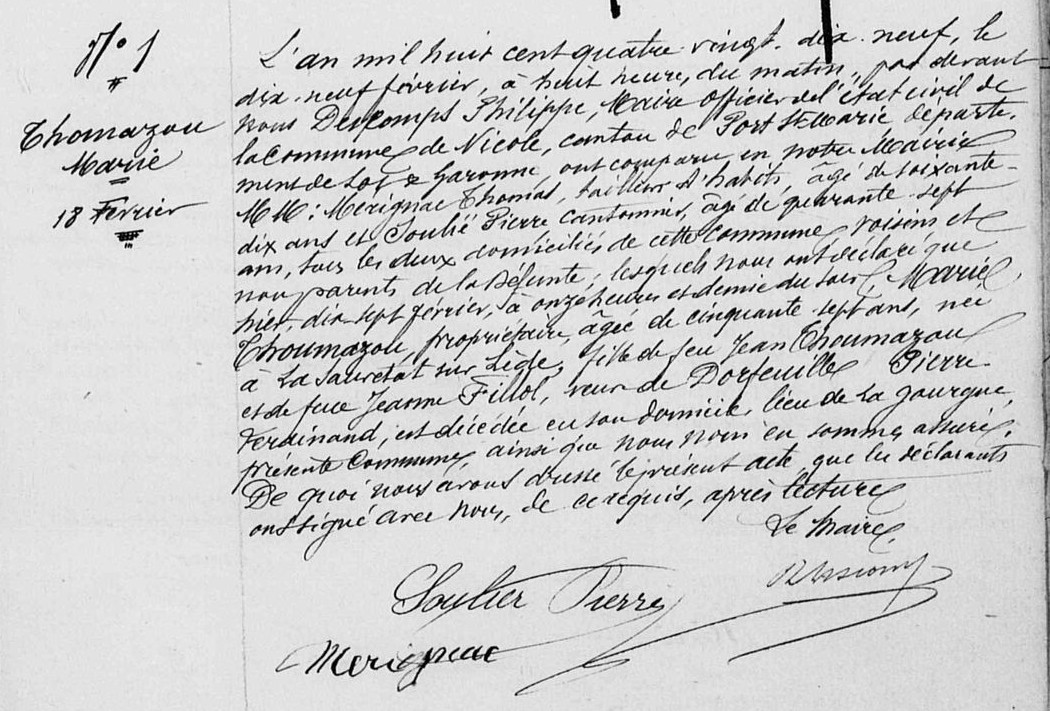 N° 1
Thomazou
Marie
18 Février
L'an mil huit cent quatre vingt. dix. neuf, le
dix. neuf février, à huit heure, du matin, par devant
nous Descomps Philippe, Maire officier de l'état civil de
la Commune de Nicole, canton de Port Ste Marie départe.
ment de Lot & Garonne, ont comparu en notre Mairie
MM: Merignac Thomas, tailleur d'habits, âgé de soixante-
dix ans et Soulié Pierre cantonnier, âgé de quarante-sept
ans, tous les deux domiciliés de cette Commune, voisins et
non parents de la Défunte, lesquels nous ont déclaré que
hier, dix-sept février, à onze heures et demie du soir, Marie
Thoumazou, propriétaire, âgée de cinquante-sept ans, née
à La Sauvetat sur Lède, fille de feu Jean Thoumazou
et de feue Jeanne Fillol, veuve de Dorfeuille Pierre
Ferdinand, est décédée en son domicile, lieu de La gourgue,
présente Commune, ainsi que nous nous en sommes assuré.
De quoi nous avons dressé le présent acte, que les déclarants
ont signé avec nous, de ce requis, après lecture
Le Maire,
Soulier Pierre
Merignac